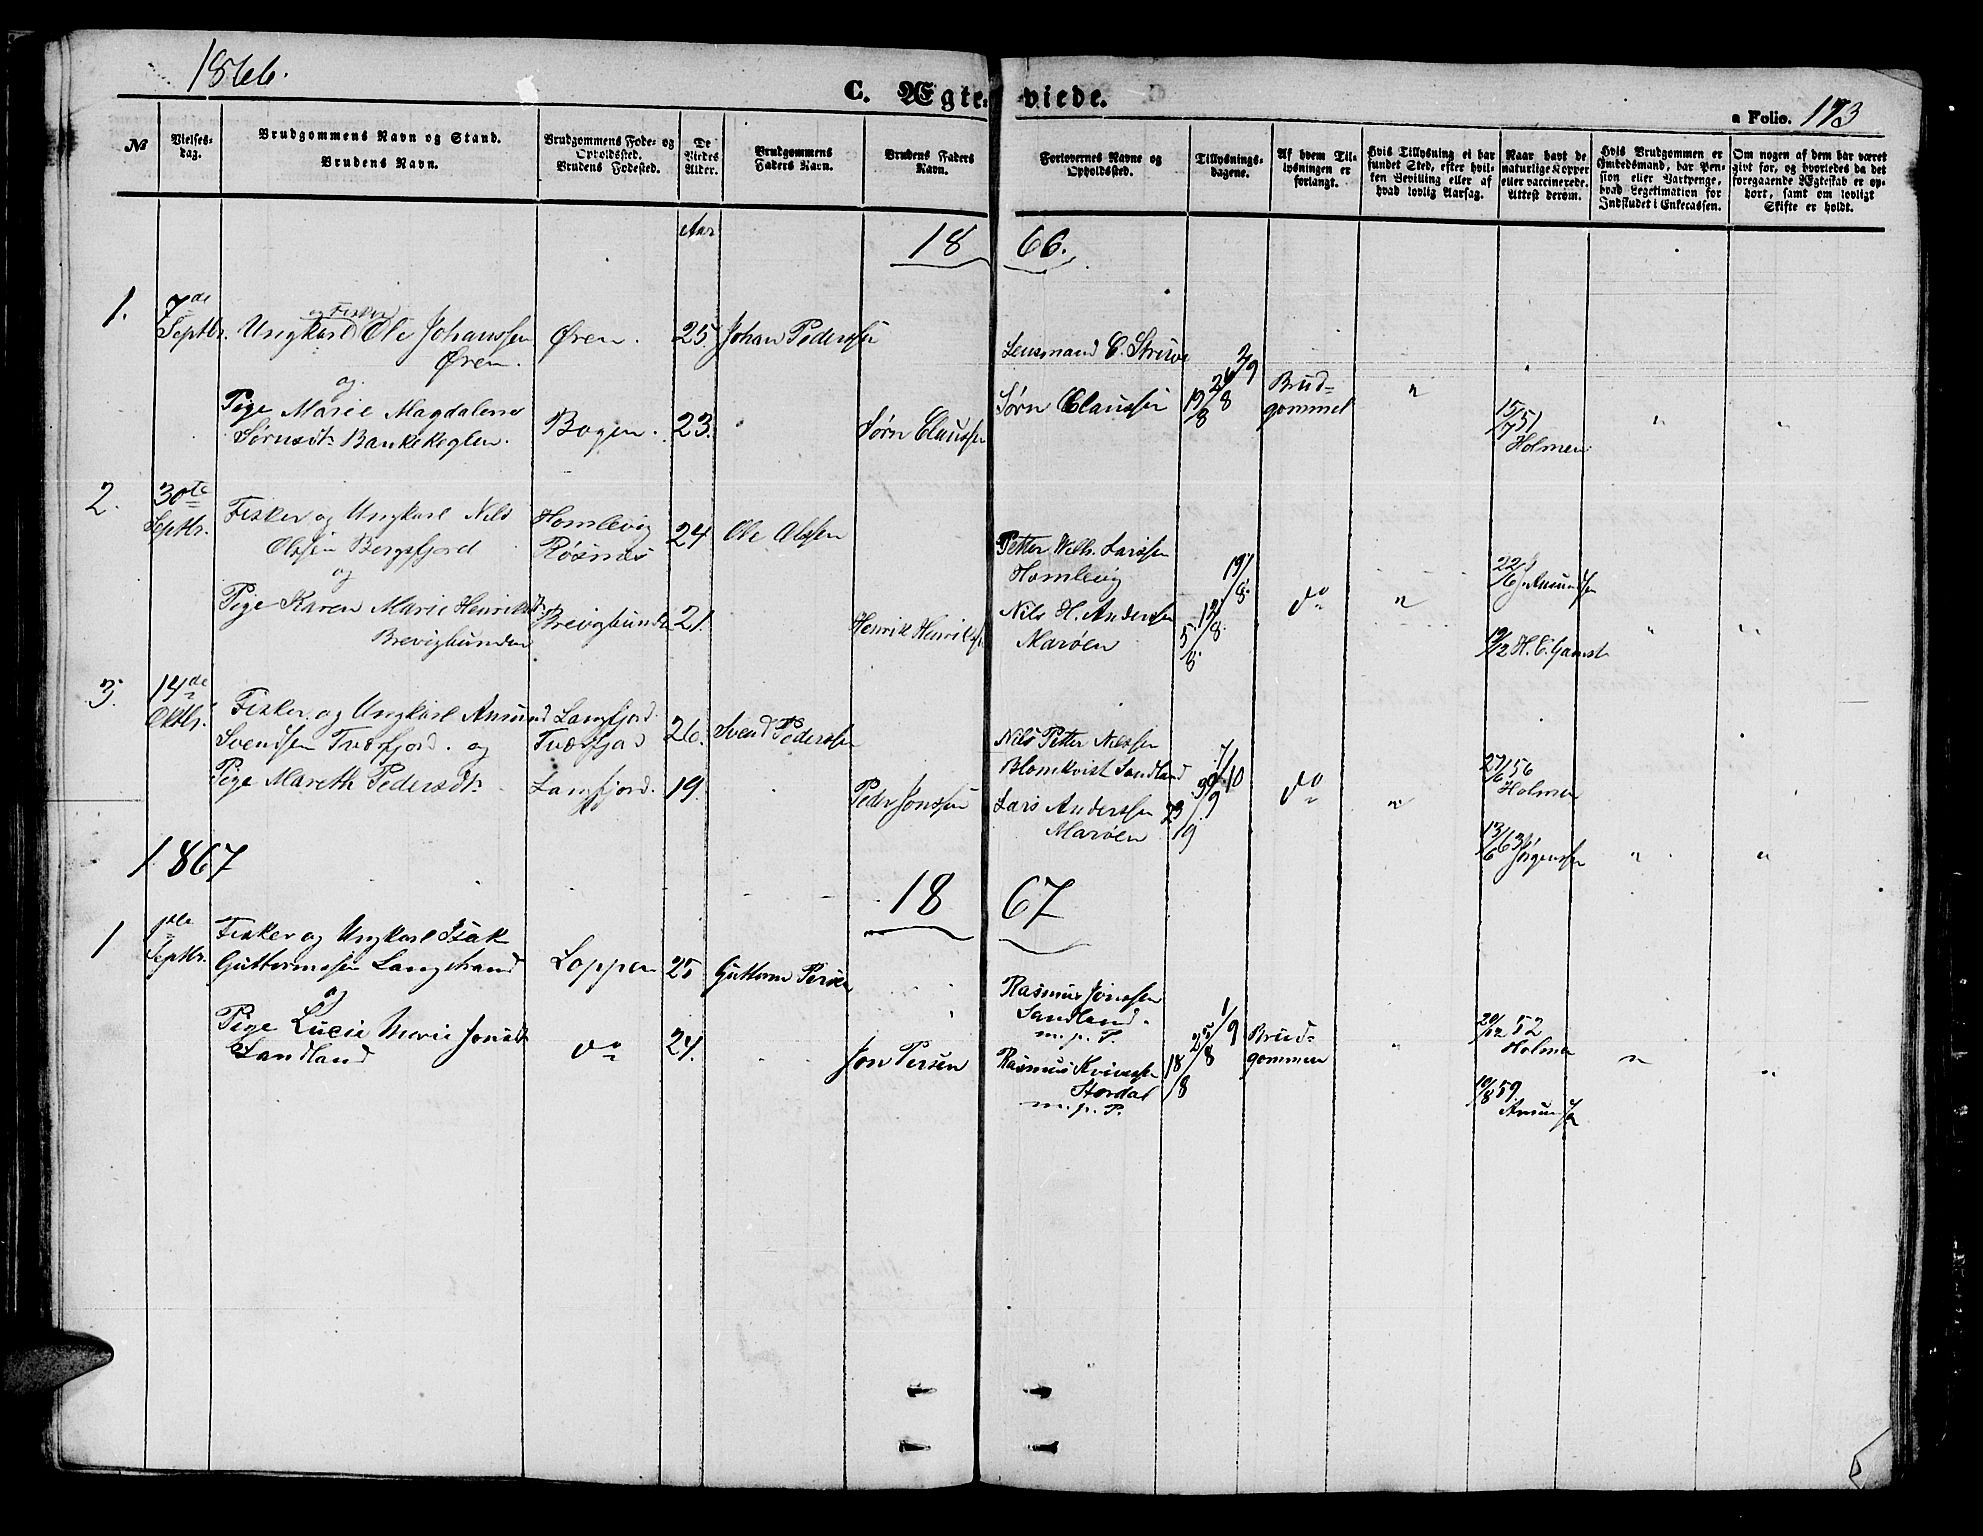 1866.
C. Ægteviede.
a Folio. 173
No
Vielses-
dag.
Brudgommens Navn og Stand.
Brudens Navn.
Brudgommens Føde- og
Opholdssted.
Brudens Fødested.
De
Viedes
Alder.
Brudgommens
Faders Navn.
Brudens Faders
Navn.
Forlovernes Navne og
Opholdssted.
Tillysnings-
dagene.
Af hvem Til-
lysningen er
forlangt.
Hvis Tillysning ei har
fundet Sted, efter hvil-
ken Bevilling eller af
hvad lovlig Aarsag.
Naar havt de
naturlige Kopper
eller vaccinerede.
Attest derom.
Hvis Brudgommen er
Embedsmand, har Pen-
sion eller Vartpenge,
hvad Legitimation for
Indskudet i Enkecassen.
Om nogen af dem har været
givt før, og hvorledes da det
foregaaende Ægteskab er op-
hørt, samt om lovligt
Skifte er holdt.
Aar
18 66.
1.
7de
Septbr.
og Fisker
Ungkarl Ole Johanssen
Øren.
og
Pige Marie Magdalena
Sørnsdtr Bankekeglen.
Øren.
Bogen.
25.
23.
Johan Pederssen
Sørn Claussen
Lensmand C. Struve
Sørn Claussen
2/9
26/8
19/8
Brud-
gommen
"
15/7 51
Holmen
"
"
2.
30te
Septbr.
Fisker og Ungkarl Nils
Olssen Bergsfjord
og
Pige Karen Marie Henriksdtr
Brevigbunden
Homlevig
Røsnæs
Brevigbunden
24
21.
Ole Olssen
Henrik Henrikssen
Petter Wilh. Larssen
Homlevig
Nils H. Anderssen
Marøen
19/8
12/8
5/8
do
"
22/6
Amundssen
19/2 H. C. Gamst
"
"
3.
14de
Oktbr.
Fisker og Ungkarl Amund
Svendsen Tverfjord. og
Pige Mareth Pedersdtr
Langfjord
Tverfjord
Langfjord.
26.
19.
Svend Pederssen
Peder Jonssen
Nils Petter Nilssen
Blomkvist Sandland
Lars Anderssen
Marøen
7/10
30/9
23/9
do
"
27/6 56
Holmen
13/6 63
Jørgenssen
"
"
1867
18 67
1
1ste
Septbr.
Fisker og Ungkarl Isak
Guttormsen Langstrand
og
Pige Lucie Marie Jonsdtr
Sandland
Loppen
do
25
24.
Guttorm Persen
Jon Persen
Rasmus Jonssen
Sandland.
m. p. P.
Rasmus Kvivesen
Stordal
m. p. P.
1/9
25/8
18/8
Brud-
gommen
"
20/12 52
Holmen
10/8 59.
Amundssen
"
"